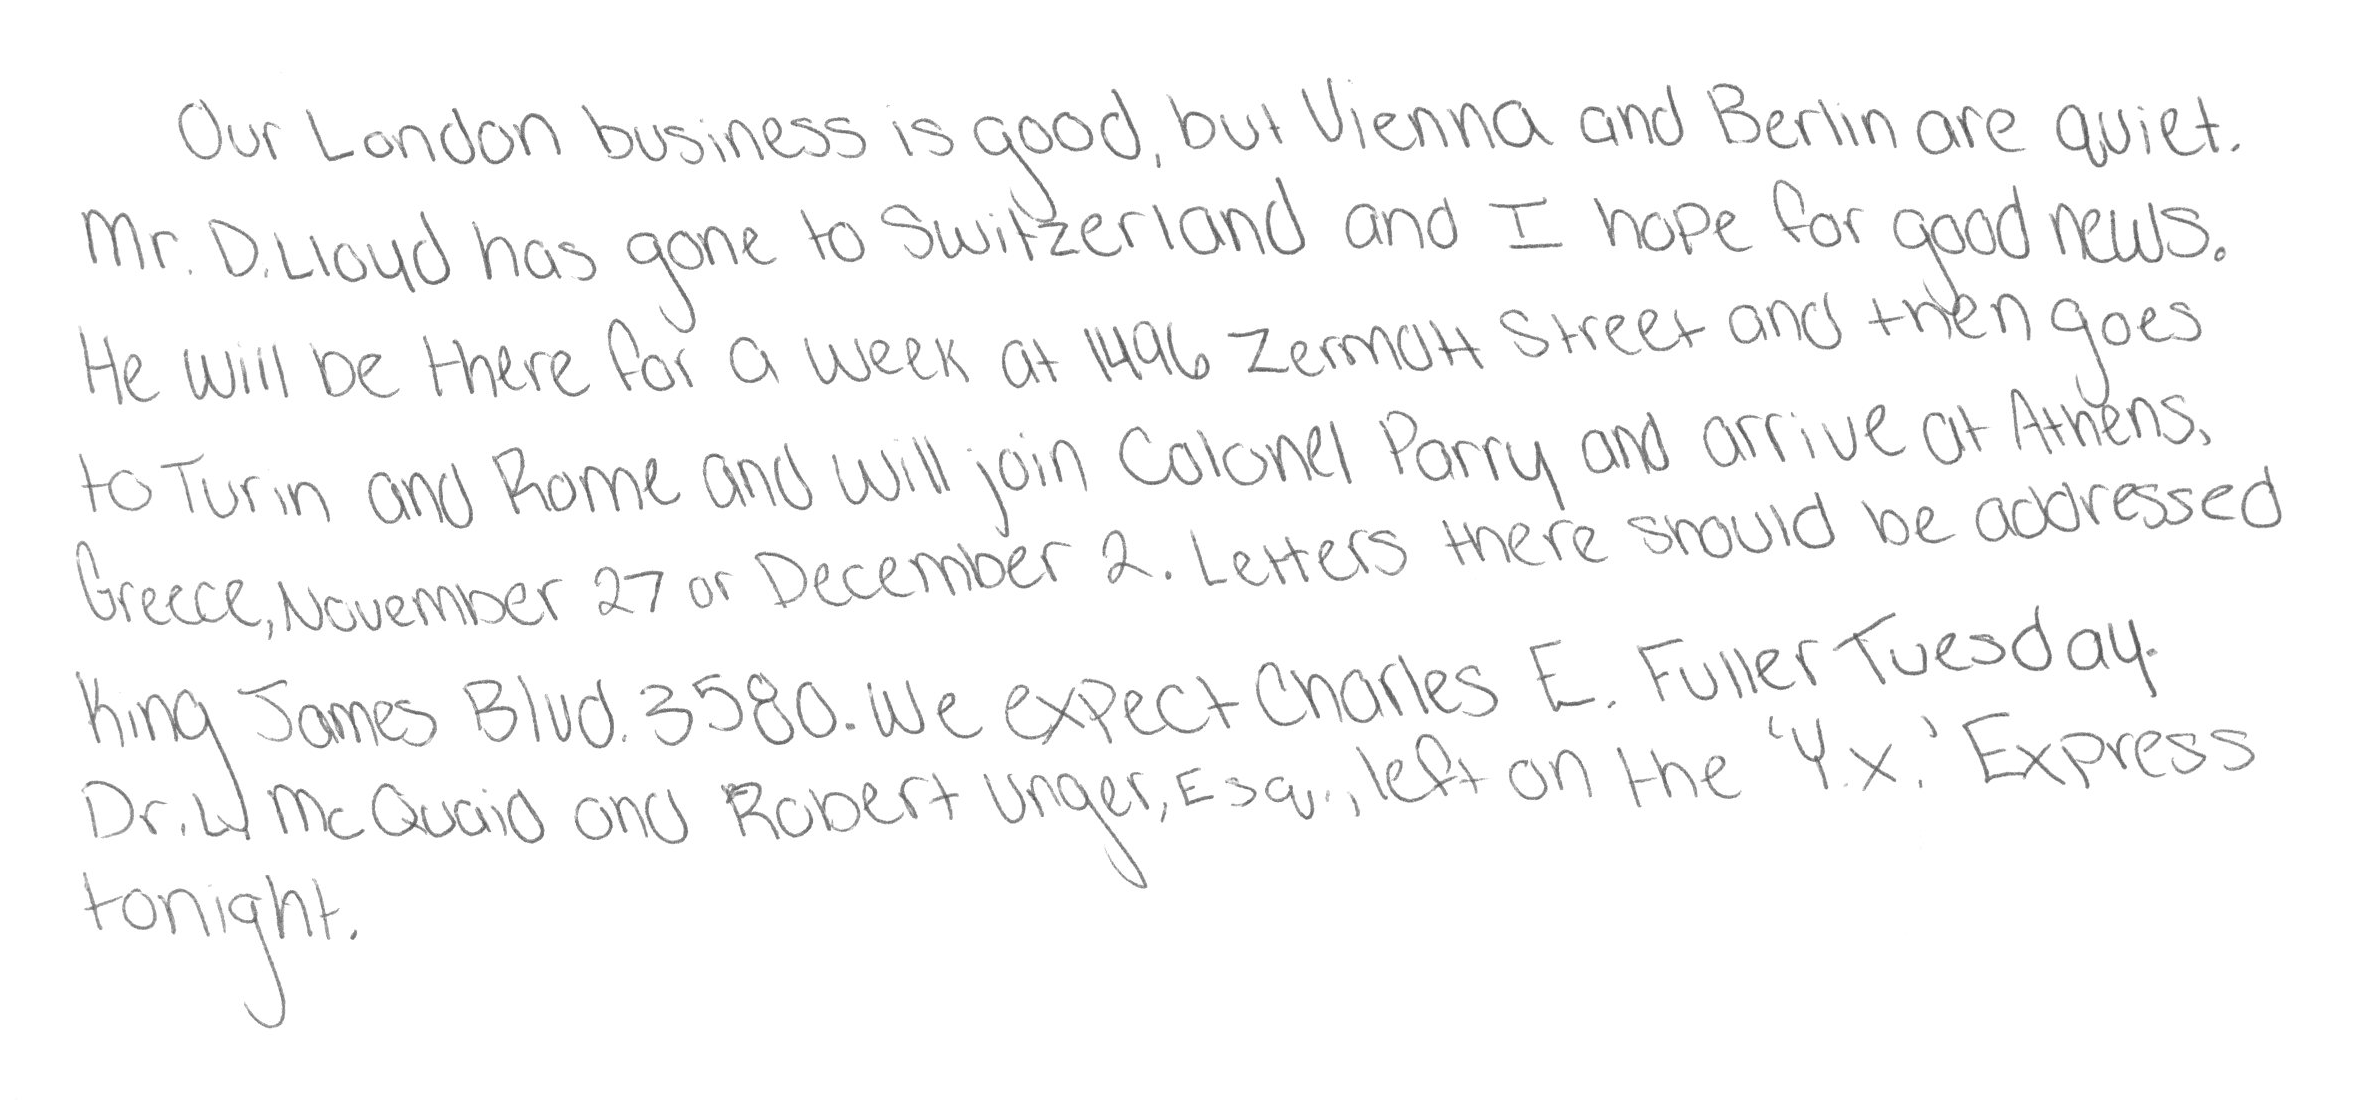 Our London business is good, but Vienna and Berlin are quiet.
Mr. D. Lloyd has gone to Switzerland and I hope for good news.
He will be there for a week at 1496 Zermatt Street and then goes
to Turin and Rome and will join Colonel Parry and arrive at Athens,
Greece, November 27 or December 2. Letters there should be addressed
King James Blvd. 3580. We expect Charles E. Fuller Tuesday.
Dr. L. McQuaid and Robert Unger, Esq., left on the 'Y.X.' Express
tonight.